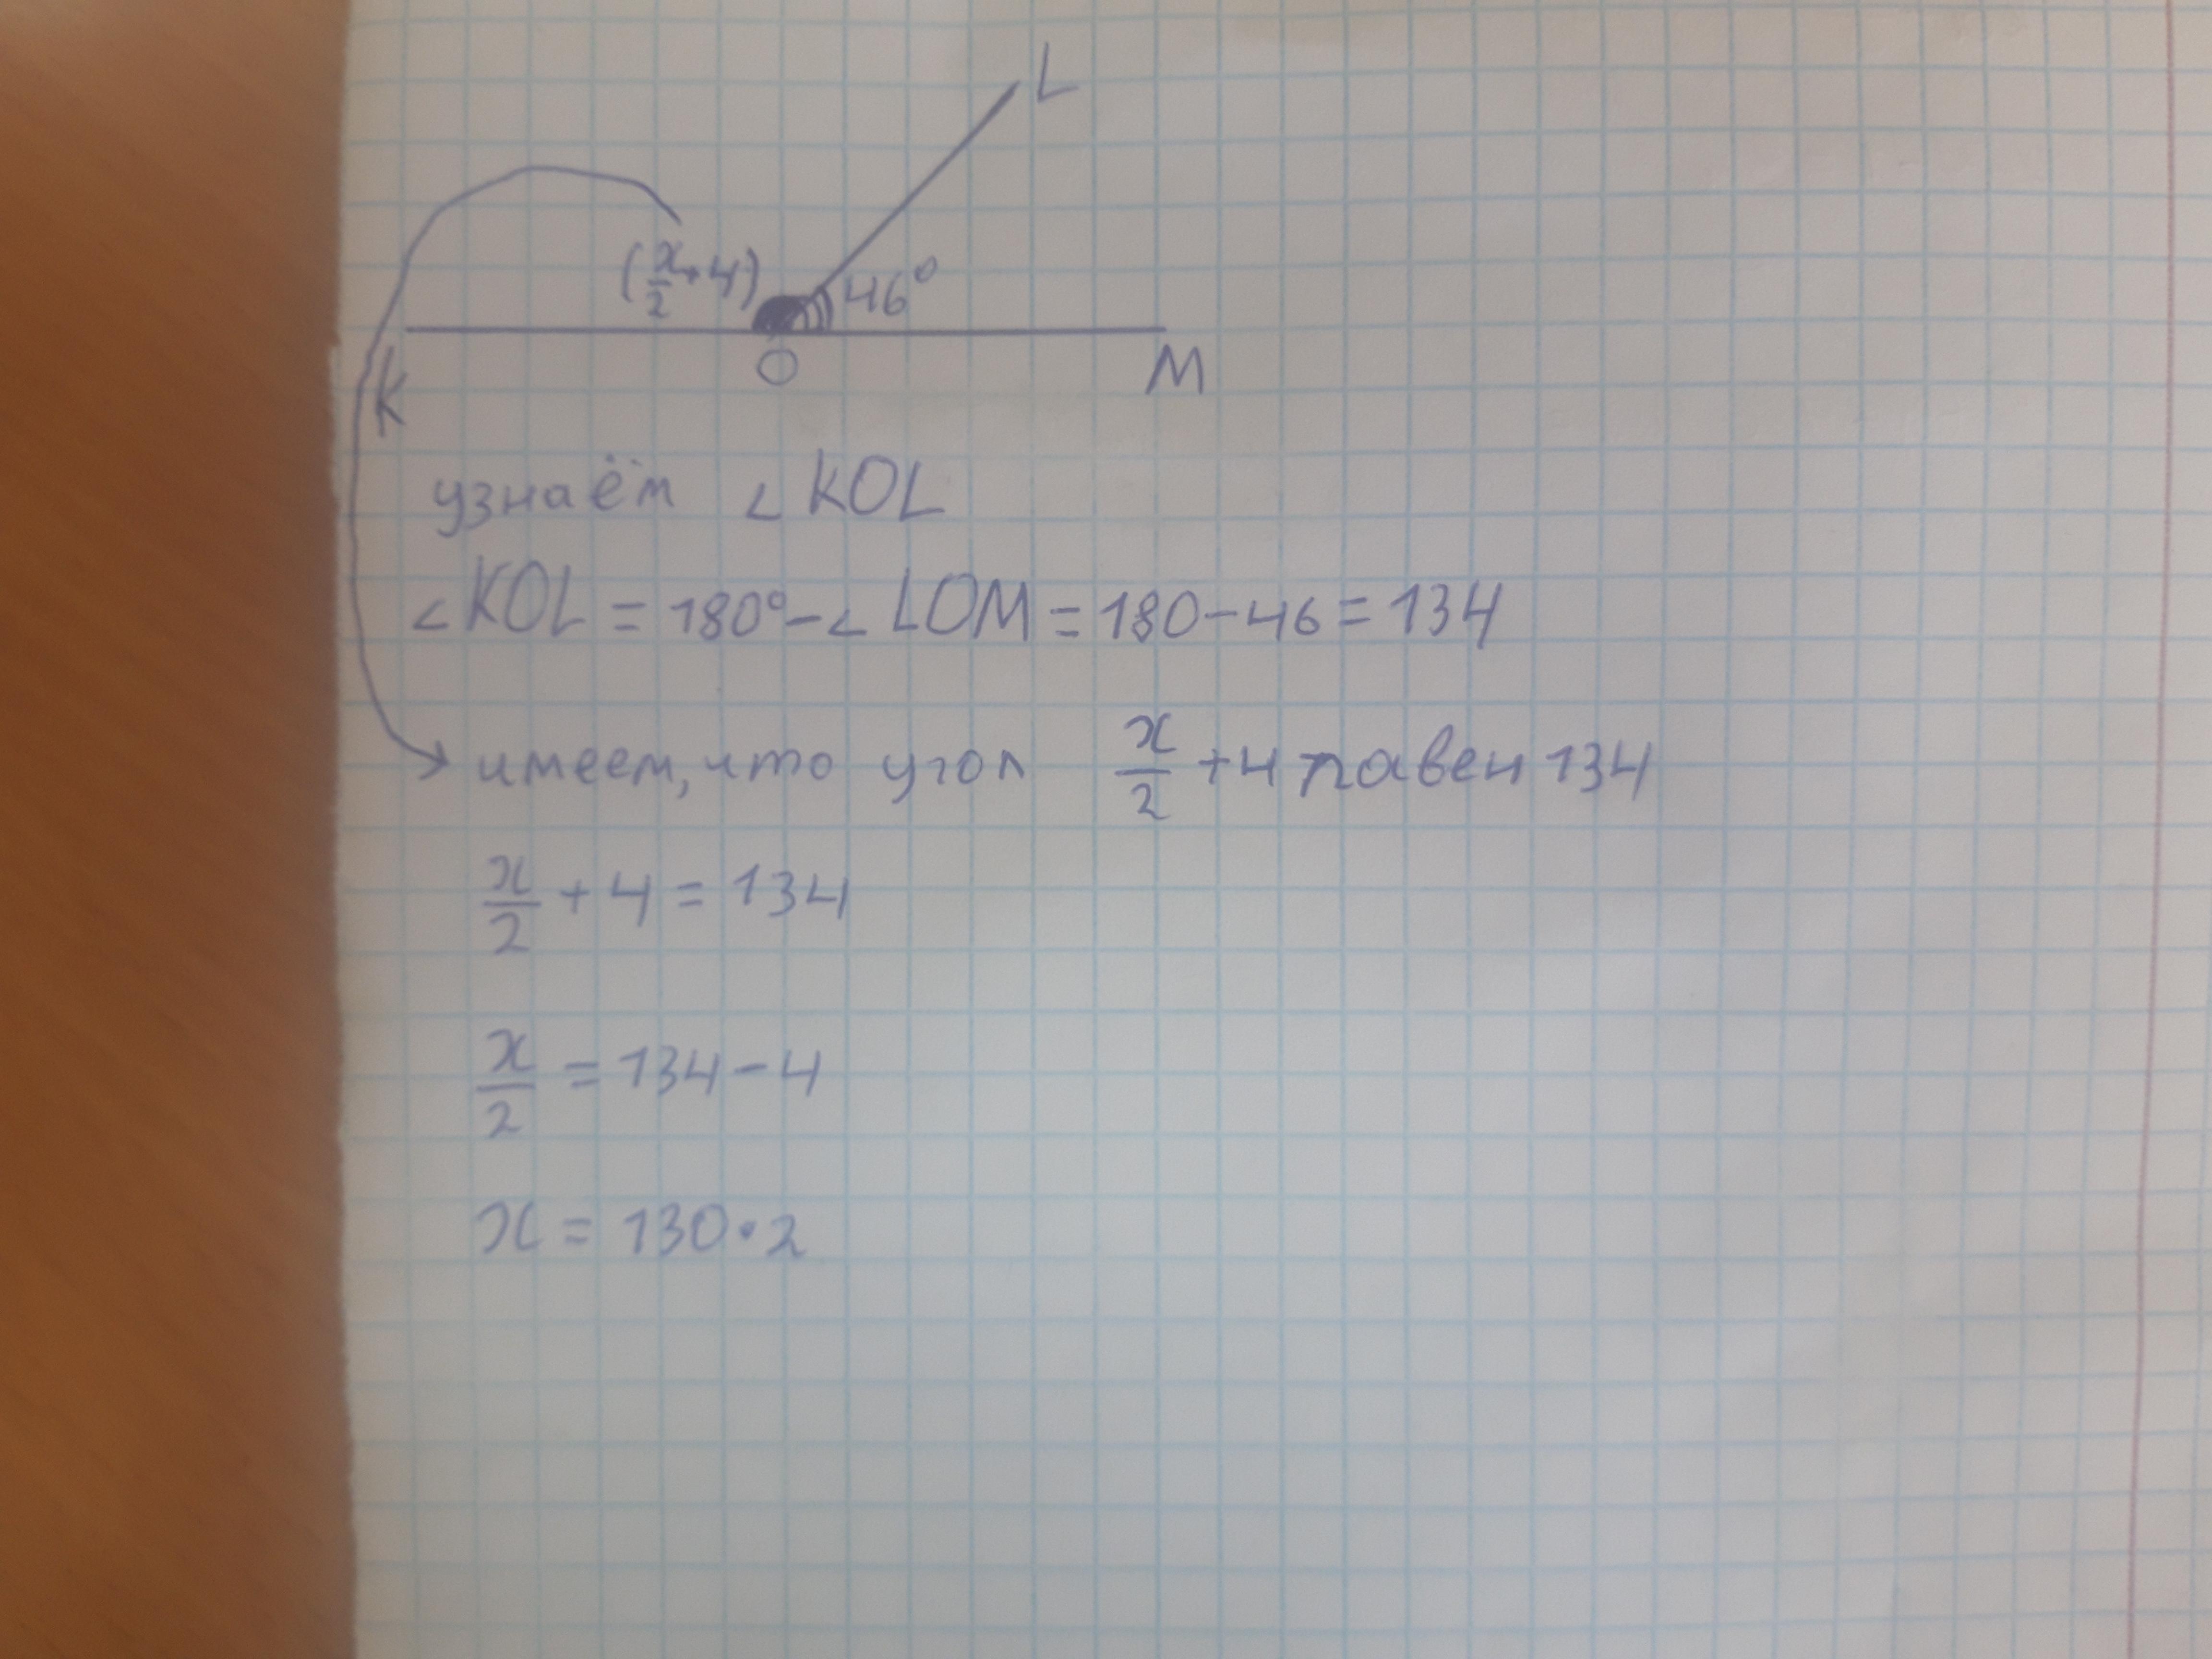 L
(x/2+4) 46°
K O M
узнаём ∠KOL
∠KOL = 180°-∠LOM = 180-46 = 134
имеем, что угол x/2 +4 равен 134
x/2 + 4 = 134
x/2 = 134-4
x = 130·2